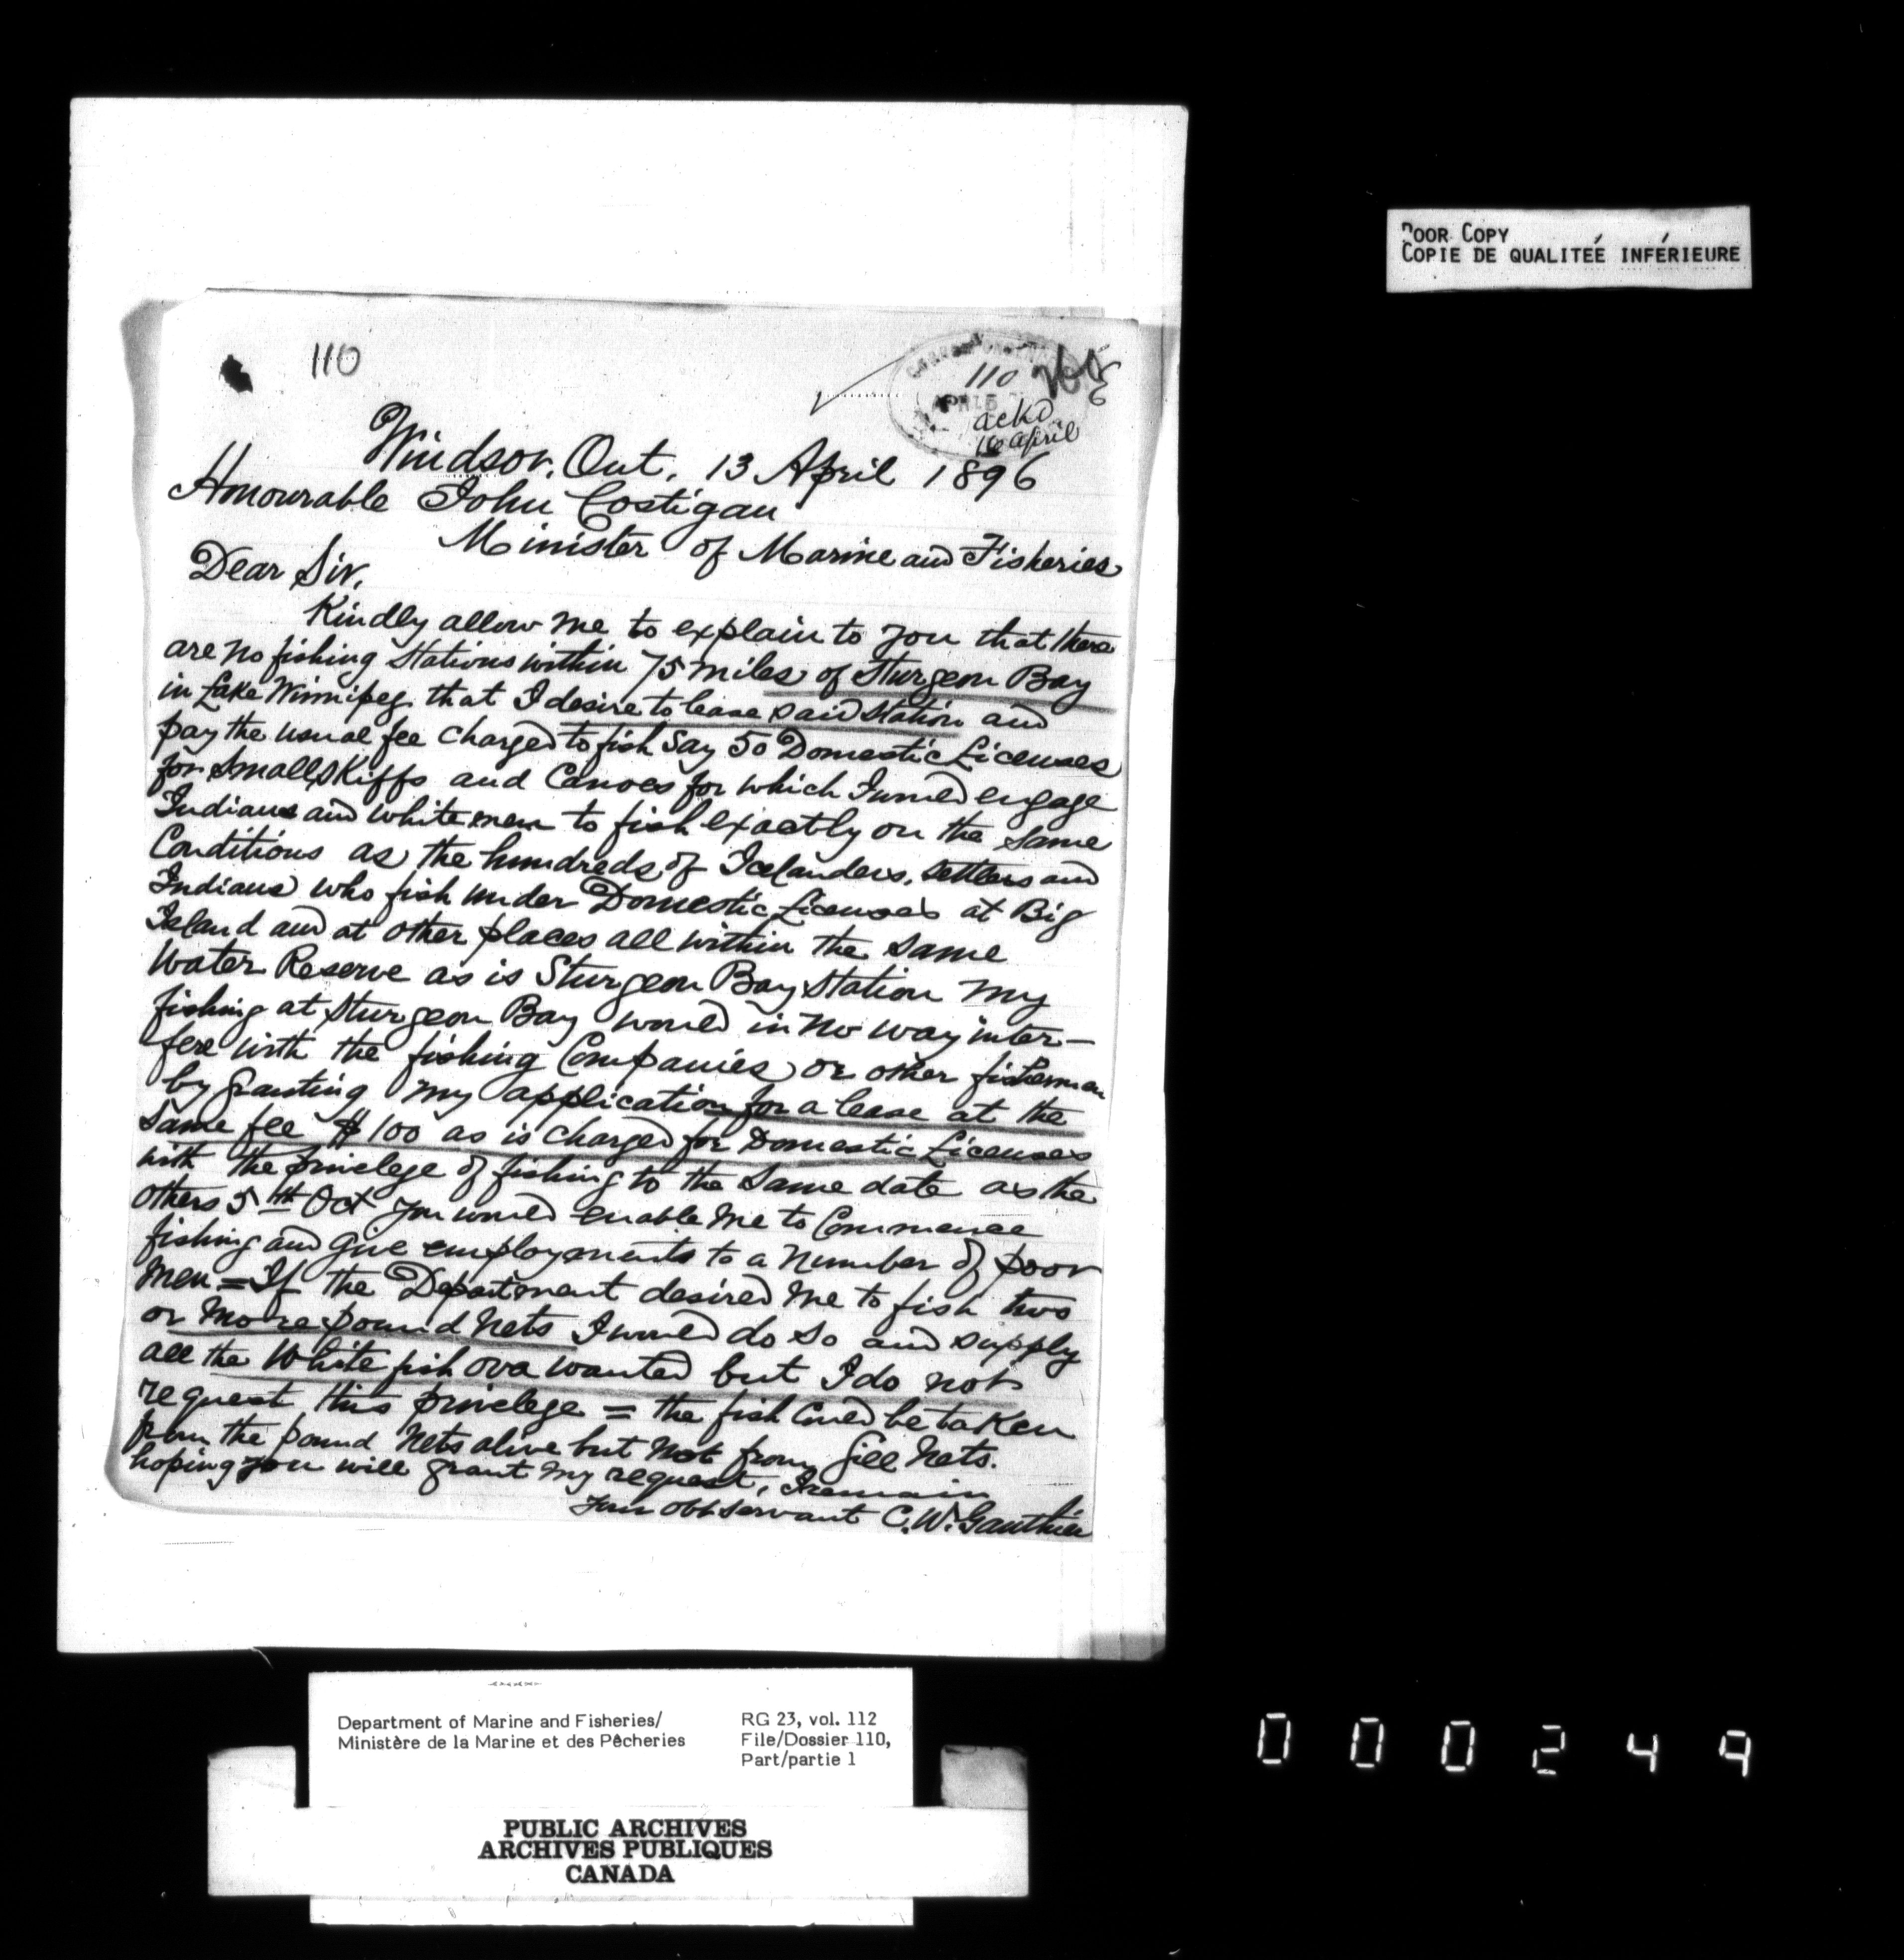 POOR COPY
COPIE DE QUALITEÉ INFÉRIEURE
110
110
APR 15
ackd
16 april
Windsor, Ont, 13 April 1896
Honourable John Costigan
Minister of Marine and Fisheries
Dear Sir,
Kindly allow me to explain to you that there
are no fishing stations within 75 miles of Sturgeon Bay
in Lake Winnipeg that I desire to lease said station and
pay the usual fee charged to fish say 50 Domestic Licenses
for small skiffs and Canoes for which I would engage
Indians and white men to fish exactly on the same
Conditions as the hundreds of Icelanders, settlers and
Indians who fish under Domestic Licenses at Big
Island and at other places all within the same
Water Reserve as is Sturgeon Bay Station my
fishing at Sturgeon Bay would in no way inter-
fere with the fishing Companies or other fisherman
by granting my application for a lease at the
same fee $100 as is charged for Domestic Licenses
with the privelege of fishing to the same date as the
others 5th Oct you would enable me to Commence
fishing and give employments to a number of poor
men = If the Department desired me to fish two
or more pound nets I would do so and supply
all the White fish ova wanted but I do not
request this privelege = the fish could be taken
from the pound nets alive but not from Gill nets.
hoping you will grant my request, I remain
Your obt servant C. W. Gauthier
Department of Marine and Fisheries/
Ministère de la Marine et des Pêcheries
RG 23, vol. 112
File/Dossier 110,
Part/partie 1
PUBLIC ARCHIVES
ARCHIVES PUBLIQUES
CANADA
000249